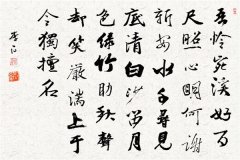 吾怜宛溪好百
尺照心明何謝
新安水千尋見
底清白沙留月
色綠竹助秋聲
却笑嚴湍上于
今獨擅名